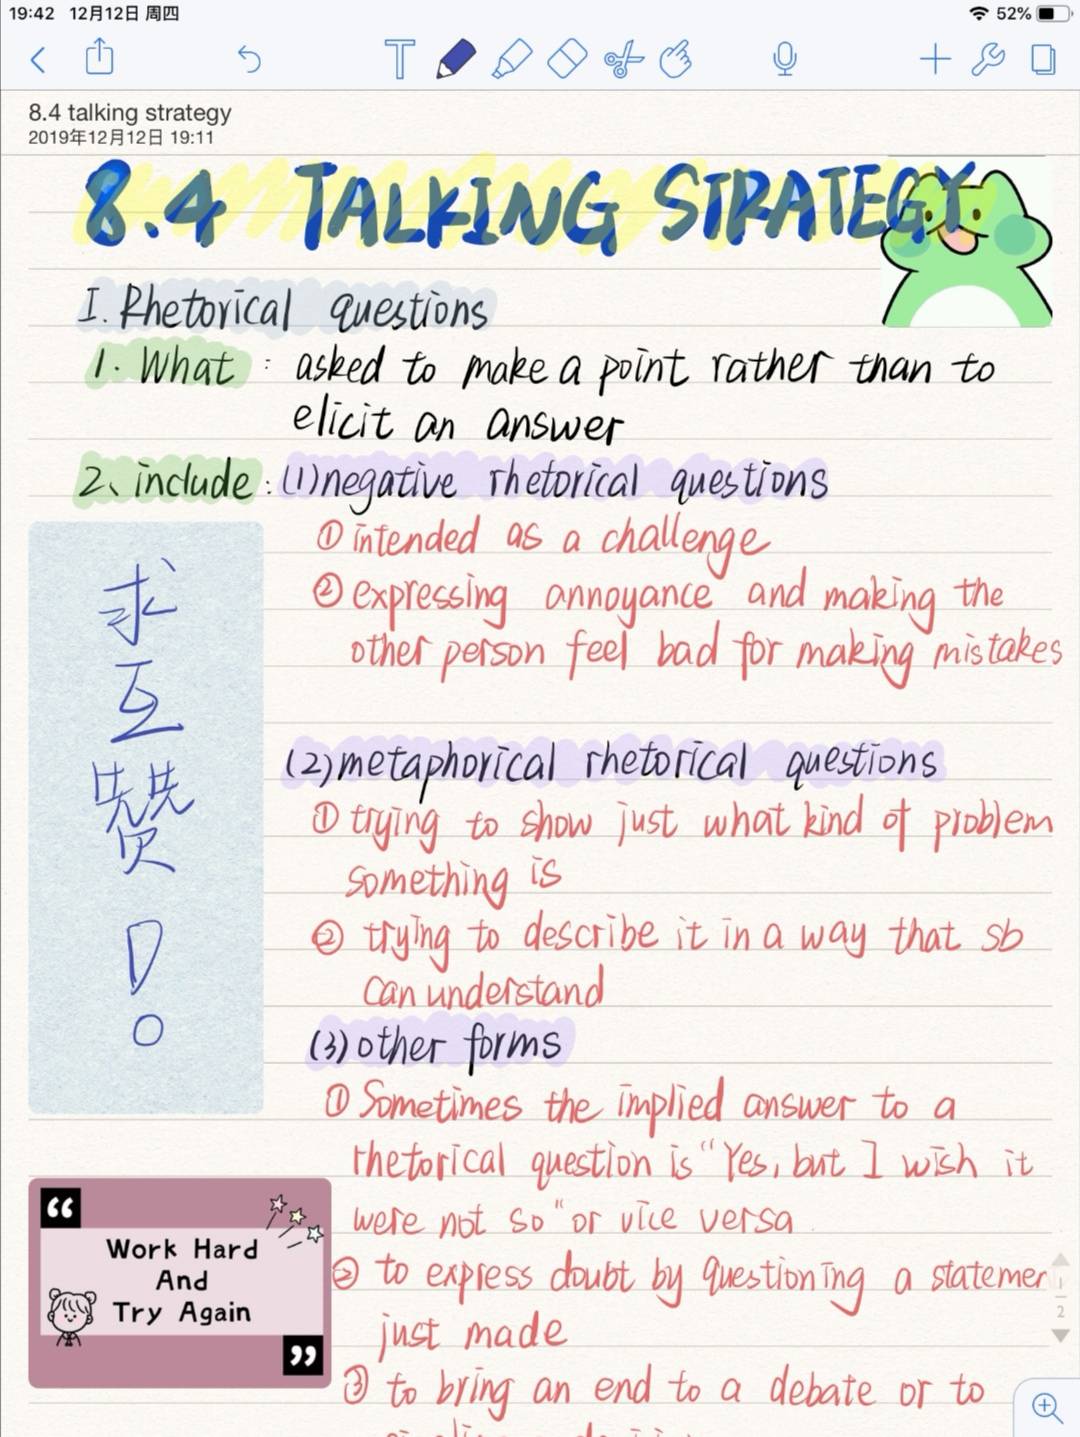 19:42 12月12日 周四
52%
8.4 talking strategy
2019年12月12日 19:11
8.4 TALKING STRATEGY
I. Rhetorical questions
1. What : asked to make a point rather than to
elicit an answer
2、include : (1)negative rhetorical questions
① intended as a challenge
② expressing annoyance and making the
other person feel bad for making mistakes
(2)metaphorical rhetorical questions
① trying to show just what kind of problem
something is
② trying to describe it in a way that sb
can understand
(3)other forms
① Sometimes the implied answer to a
rhetorical question is "Yes, but I wish it
were not so" or vice versa
② to express doubt by questioning a statemer
just made
③ to bring an end to a debate or to
求
互
赞
D
。
“
Work Hard
And
Try Again
”
1
2